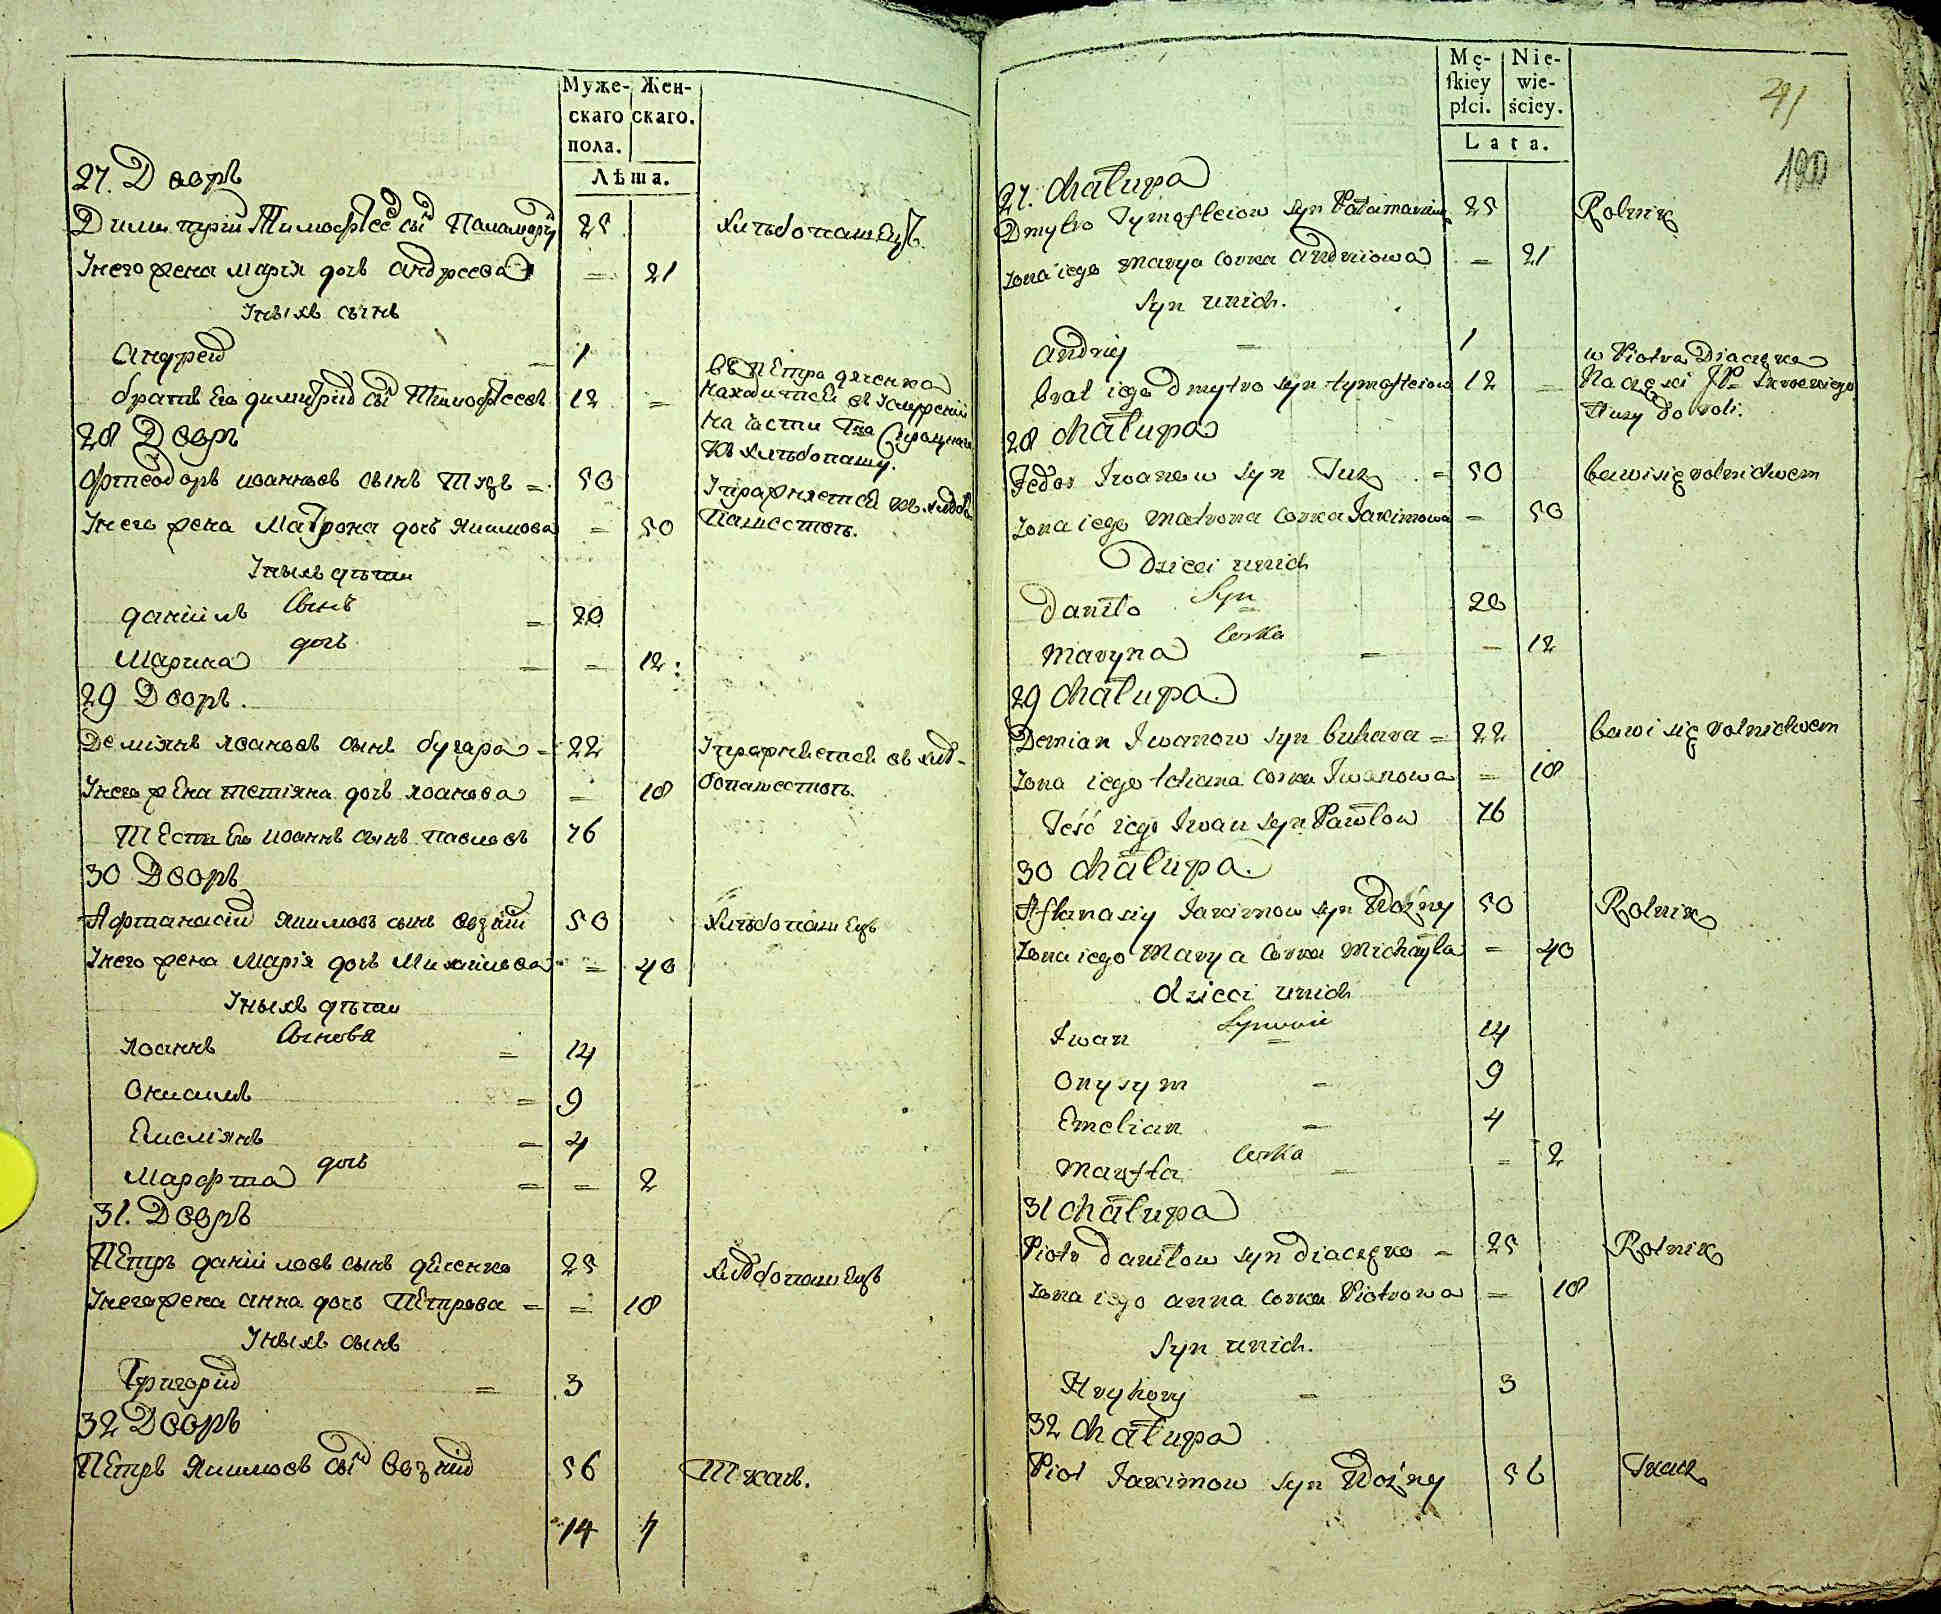 Муже-
скаго
пола.
Жен-
скаго.
Лѣта.
27. Дворъ
Димитрій Тимофѣевъ сы Паламарь 25 Хлѣбопашецъ.
У него жена Марія дочь Андреева = 21
У ныхъ сынъ
Андрей = 1
братъ его Димитрій сы Тимофѣевъ 12 =
въ Петра дяченка
находится въ услуженій
на части
хлѣбопашу.
28 Дворъ
Фтеодоръ Иоанновъ сынъ Тузъ = 50 Упражняется въ хлѣбо
У него жена Матрона дочь Якимова = 50 пашествѣ.
У ныхъ дѣти
Даніилъ сынъ = 20
Марина дочь = = 12.
29 Дворъ.
Деміянъ Иоановъ сынъ бугара = 22 Упражняется въ хлѣ-
У него жена Тетіяна дочь Иоанова = 18 бопашествѣ.
Тесть его Иоаннъ сынъ Павловъ 76
30 Дворъ
Афтанасій Якимовъ сынъ Возній 50 Хлѣбопашецъ
У него жена Марія дочь Михайлова = 40
У ныхъ дѣти
Иоаннъ Сынова = 14
Онисимъ = 9
Емеліянъ = 4
Марфта дочь = = 2
31. Дворъ
Петръ Даніиловъ сынъ дяченко 25 Хлѣбопашецъ
У него жена Анна дочь Петрова = = 18
У ныхъ сынъ
Григорій = 3
32 Дворъ
Петръ Якимовъ сы Возній 56 Ткачъ.
14 7
Mę-
skiey
płci.
Nie-
wie-
ściey.
Lata.
291
190
27. chałupa
Dmytro Tymofteiow syn Pałamariow 25 Rolnik
Zona iego Marya corka Andriowa = 21
Syn unich.
Andriy = 1
brat iego Dmytro syn tymofteiow 12 =
w Piotra Diaczęka
Na części JP
służy do roli.
28 chałupa
Fedor Iwanow syn Tuz = 50 bawi się rolnictwem
Zona iego Matrona corka Jakimowa = 50
Dzieci unich
Daniło Syn = 20
Maryna corka = = 12
29 chałupa.
Demian Iwanow syn buhara = 22 bawi się rolnictwem
Zona iego tetiana corka Iwanowa = 18
Teść iego Iwan syn Pawłow 76
30 chałupa.
Aftanasiy Jakimow syn Woźny 50 Rolnik
Zona iego Marya corka Michayła = 40
dzieci unich
Iwan Synowie = 14
Onysym = 9
Emelian = 4
Marfta corka = = 2
31 chałupa
Piotr Daniłow syn Diaczęko = 25 Rolnik
Zona iego Anna corka Piotrowa = 18
Syn unich.
Hryhory = 3
32 chałupa
Piot Jakimow syn Woźny 56 Tkacz